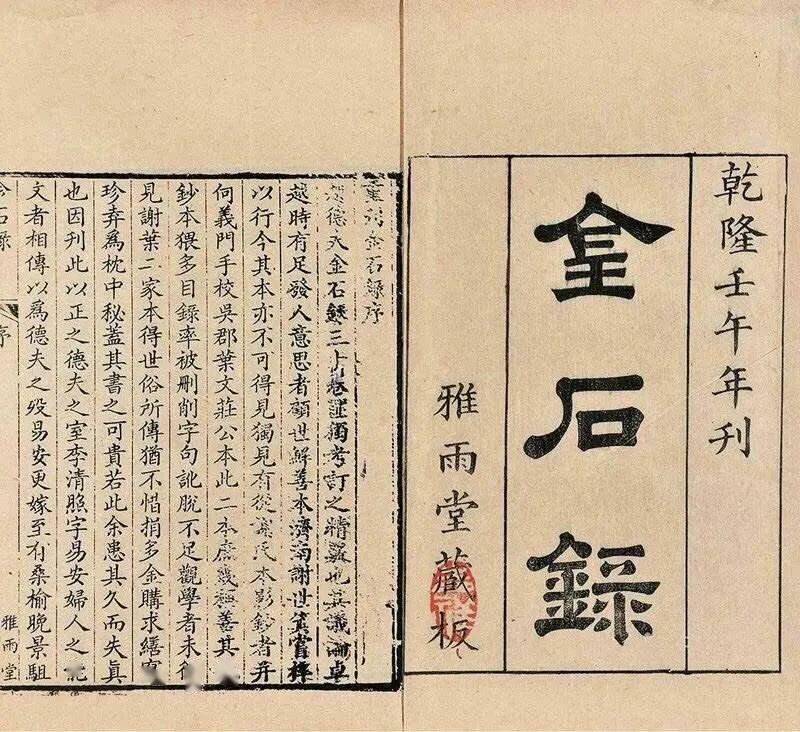 乾隆壬午年刊
金石錄
雅雨堂藏板
重刊金石錄序
趙德夫金石錄三十卷匪獨考訂之精覈也其議論卓
越時有足發人意思者顧世解善本濟南謝世箕嘗梓
以行今其本亦不可得見獨見有從謝氏本影鈔者并
何義門手校吳郡葉文莊公本此二本庶幾稱善其
鈔本猥多目錄率被刪削字句訛脫不足觀學者未得
見謝葉二家本得世俗所傳猶不惜捐多金購求繕寫
珍弆爲枕中秘蓋其書之可貴若此余患其久而失真
也因刊此以正之德夫之室李清照字易安婦人之能
文者相傳以爲德夫之歿易安更嫁至有桑榆晚景駔
金石錄 序 雅雨堂